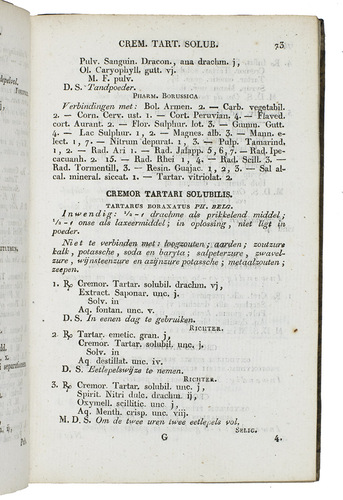 CREM. TART. SOLUB. 73
Pulv. Sanguin. Dracon., ana drachm. j,
Ol. Caryophyll. gutt. vj.
M. F. pulv.
D. S. Tandpoeder.
PHARM. BORUSSICA
Verbindingen met: Bol. Armen. 2. — Carb. vegetabil.
2. — Corn. Cerv. ust. 1. — Cort. Peruvian. 4. — Flaved.
cort. Aurant. 2. — Flor. Sulphur. lot. 3. — Gumm. Gutt.
4. — Lac Sulphur. 1, 2. — Magnes. alb. 3. — Mann. e-
lect. 1, 7. — Nitrum depurat. 1, 3. — Pulp. Tamarind.
1, 2. — Rad. Ari 1. — Rad. Jalapp. 5, 6, 7. — Rad. Ipe-
cacuanh. 2. 15. — Rad. Rhei 1, 4. — Rad. Scill. 3. —
Rad. Tormentill. 3. — Resin. Guajac. 1, 2, 3. — Sal al-
cal. mineral. siccat. 1. — Tartar. vitriolat. 2.
CREMOR TARTARI SOLUBILIS.
TARTARUS BORAXATUS PH. BELG.
Inwendig: ½-1 drachme als prikkelend middel;
½-1 onse als laxeermiddel; in oplossing, niet ligt in
poeder.
Niet te verbinden met: loogzouten; aarden; zoutzure
kalk, potassche, soda en baryta; salpeterzure, zwavel-
zure, wijnsteenzure en azijnzure potassche; metaalzouten;
zeepen.
1. ℞ Cremor. Tartar. solubil. drachm. vj,
Extract. Saponar. unc. j.
Solv. in
Aq. fontan. unc. v.
D. S. In eenen dag te gebruiken.
RICHTER.
2. ℞ Tartar. emetic. gran. j,
Cremor. Tartar. solubil. unc. j.
Solv. in
Aq. destillat. unc. iv.
D. S. Eetlepelswijze te nemen.
RICHTER.
3. ℞ Cremor. Tartar. solubil. unc. j,
Spirit. Nitri dulc. drachm. ij,
Oxymell. scillitic. unc. j,
Aq. Menth. crisp. unc. viij.
M. D. S. Om de twee uren twee eetlepels vol.
SELIG.
G 4.